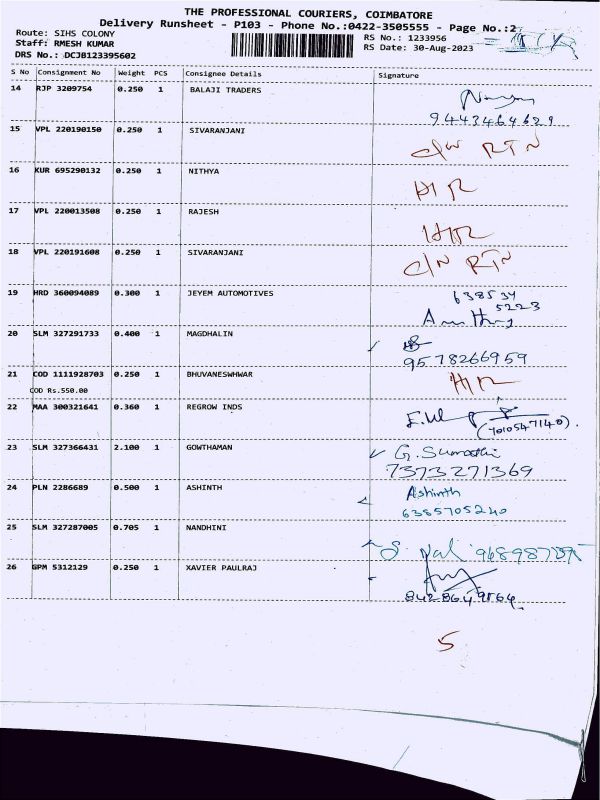 THE PROFESSIONAL COURIERS, COIMBATORE
Delivery Runsheet - P103 - Phone No.:0422-3505555 - Page No.:2
Route: SIHS COLONY RS No.: 1233956
Staff: RMESH KUMAR RS Date: 30-Aug-2023
DRS No.: DCJB123395602
S No Consignment No Weight PCS Consignee Details Signature
14 RJP 3209754 0.250 1 BALAJI TRADERS
9443464629
15 VPL 220190150 0.250 1 SIVARANJANI
C/N RTN
16 KUR 695290132 0.250 1 NITHYA
HIR
17 VPL 220013508 0.250 1 RAJESH
HIR
18 VPL 220191608 0.250 1 SIVARANJANI
C/N RTN
19 HRD 360094089 0.300 1 JEYEM AUTOMOTIVES
638534
5223
20 SLM 327291733 0.400 1 MAGDHALIN
9578266959
21 COD 1111928703 0.250 1 BHUVANESHWAR
HIR
COD Rs.550.00
22 MAA 300321641 0.360 1 REGROW INDS
(7010547140).
23 SLM 327366431 2.100 1 GOWTHAMAN
G. Sumathi
7373271369
24 PLN 2286689 0.500 1 ASHINTH
Ashinth
6385705240
25 SLM 327287005 0.705 1 NANDHINI
26 GPM 5312129 0.250 1 XAVIER PAULRAJ
5